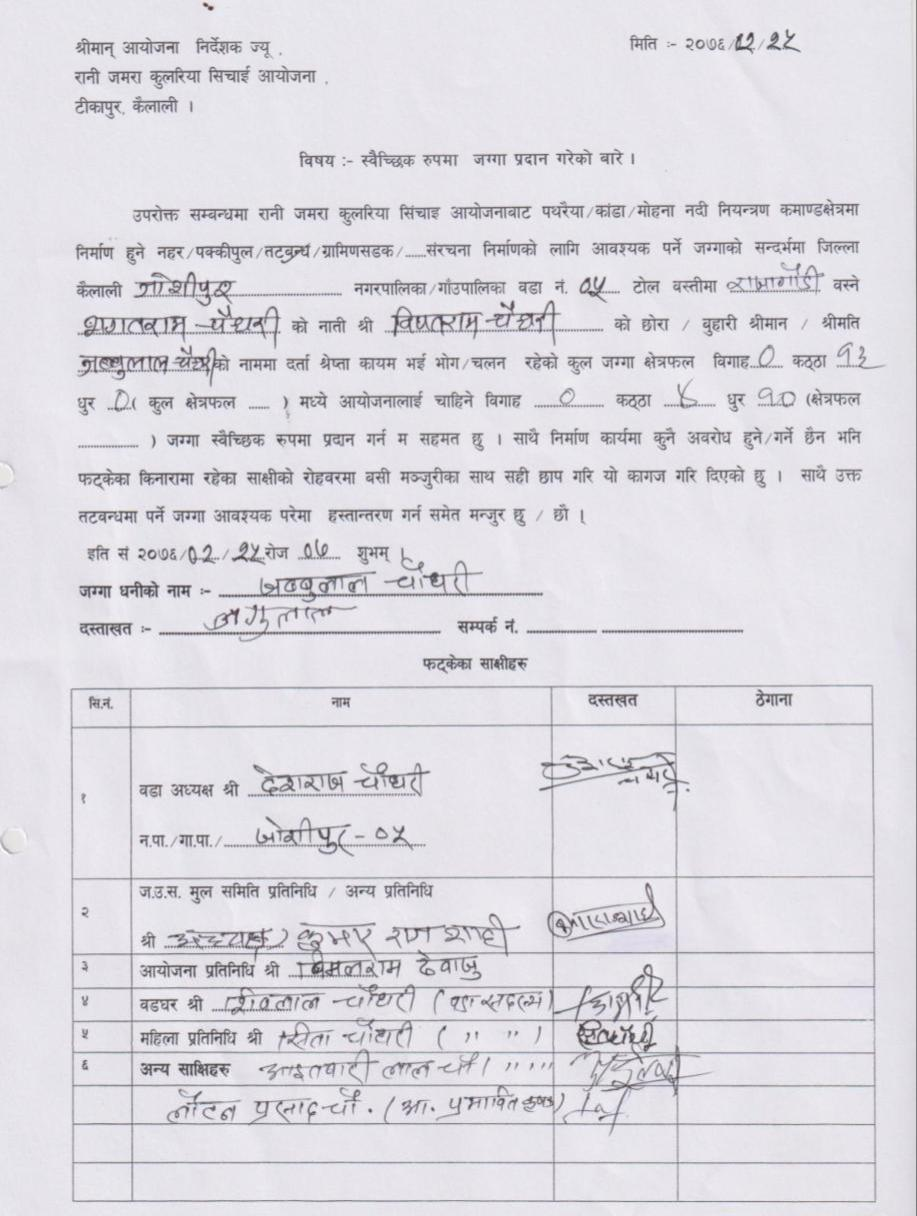 श्रीमान् आयोजना निर्देशक ज्यू , मिति :- २०७६/02/२५
रानी जमरा कुलरिया सिचाई आयोजना ,
टीकापुर, कैलाली ।
विषय :- स्वैच्छिक रुपमा जग्गा प्रदान गरेको बारे ।
उपरोक्त सम्बन्धमा रानी जमरा कुलरिया सिंचाइ आयोजनाबाट पथरैया/कांडा/मोहना नदी नियन्त्रण कमाण्डक्षेत्रमा
निर्माण हुने नहर/पक्कीपुल/तटबन्ध/ग्रामिणसडक/......संरचना निर्माणको लागि आवश्यक पर्ने जग्गाको सन्दर्भमा जिल्ला
कैलाली जोशीपुर नगरपालिका/गाँउपालिका वडा नं. ०५ टोल वस्तीमा वस्ने
भगतराम चौधरी को नाती श्री विपतराम चौधरी को छोरा / बुहारी श्रीमान / श्रीमति
जब्बुलाल चौधरी को नाममा दर्ता श्रेप्ता कायम भई भोग/चलन रहेको कुल जग्गा क्षेत्रफल विगाह 0 कठ्ठा १३
धुर 0 ( कुल क्षेत्रफल ..... ) मध्ये आयोजनालाई चाहिने विगाह 0 कठ्ठा धुर १0 (क्षेत्रफल
............... ) जग्गा स्वैच्छिक रुपमा प्रदान गर्न म सहमत छु । साथै निर्माण कार्यमा कुनै अवरोध हुने/गर्ने छैन भनि
फट्केका किनारामा रहेका साक्षीको रोहवरमा बसी मञ्जुरीका साथ सही छाप गरि यो कागज गरि दिएको छु । साथै उक्त
तटबन्धमा पर्ने जग्गा आवश्यक परेमा हस्तान्तरण गर्न समेत मन्जुर छु / छौं ।
इति सं २०७६/02/२५ रोज ०७ शुभम् ।
जग्गा धनीको नाम :- जब्बुलाल चौधरी
दस्ताखत :- सम्पर्क नं. ............... ...............
फट्केका साक्षीहरु
सि.नं. नाम दस्तखत ठेगाना
१ वडा अध्यक्ष श्री देशराज चौधरी
न.पा./गा.पा./ जोशीपुर - ०५
२ ज.उ.स. मुल समिति प्रतिनिधि / अन्य प्रतिनिधि
श्री कुमार राण शाही
३ आयोजना प्रतिनिधि श्री बिमलराम देवाजु
४ वडघर श्री शिवलाल चौधरी ( वडा सदस्य )
५ महिला प्रतिनिधि श्री सिता चौधरी ( " " )
६ अन्य साक्षिहरु आइतवारी लाल चौ ( " " "
लौटन प्रसाद चौ . ( आ. प्रभावित कृषक )